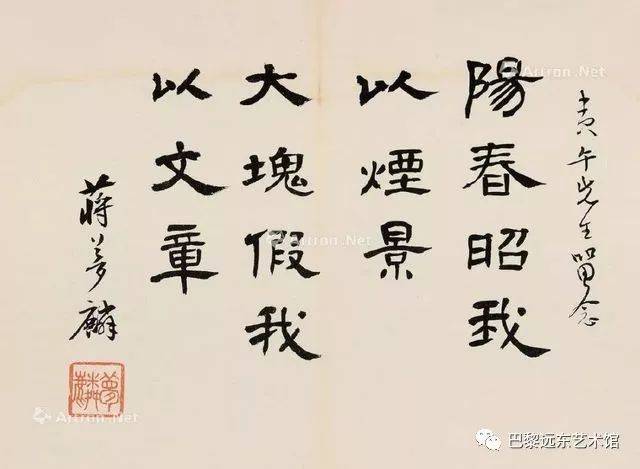 寅午先生留念
陽春昭我
以煙景
大塊假我
以文章
蔣夢麟
夢麟
Artron.Net
Artron.Net
Artron.Net
Artron.Net
巴黎远东艺术馆